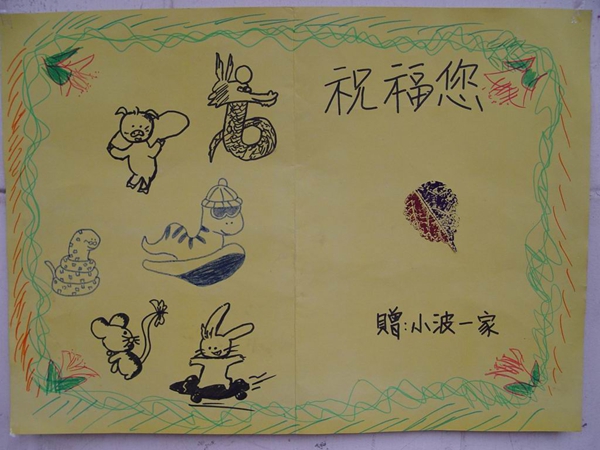 祝福您
贈:小波一家